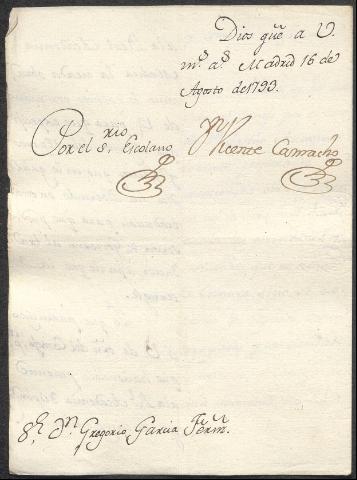 Dios gũe a V.
m.s a.s Madrid 16 de
Agosto de 1793.
Por el s.rio Escolano
Vicente Camacho
S.r D.n Gregorio Garcia Fẽrm.